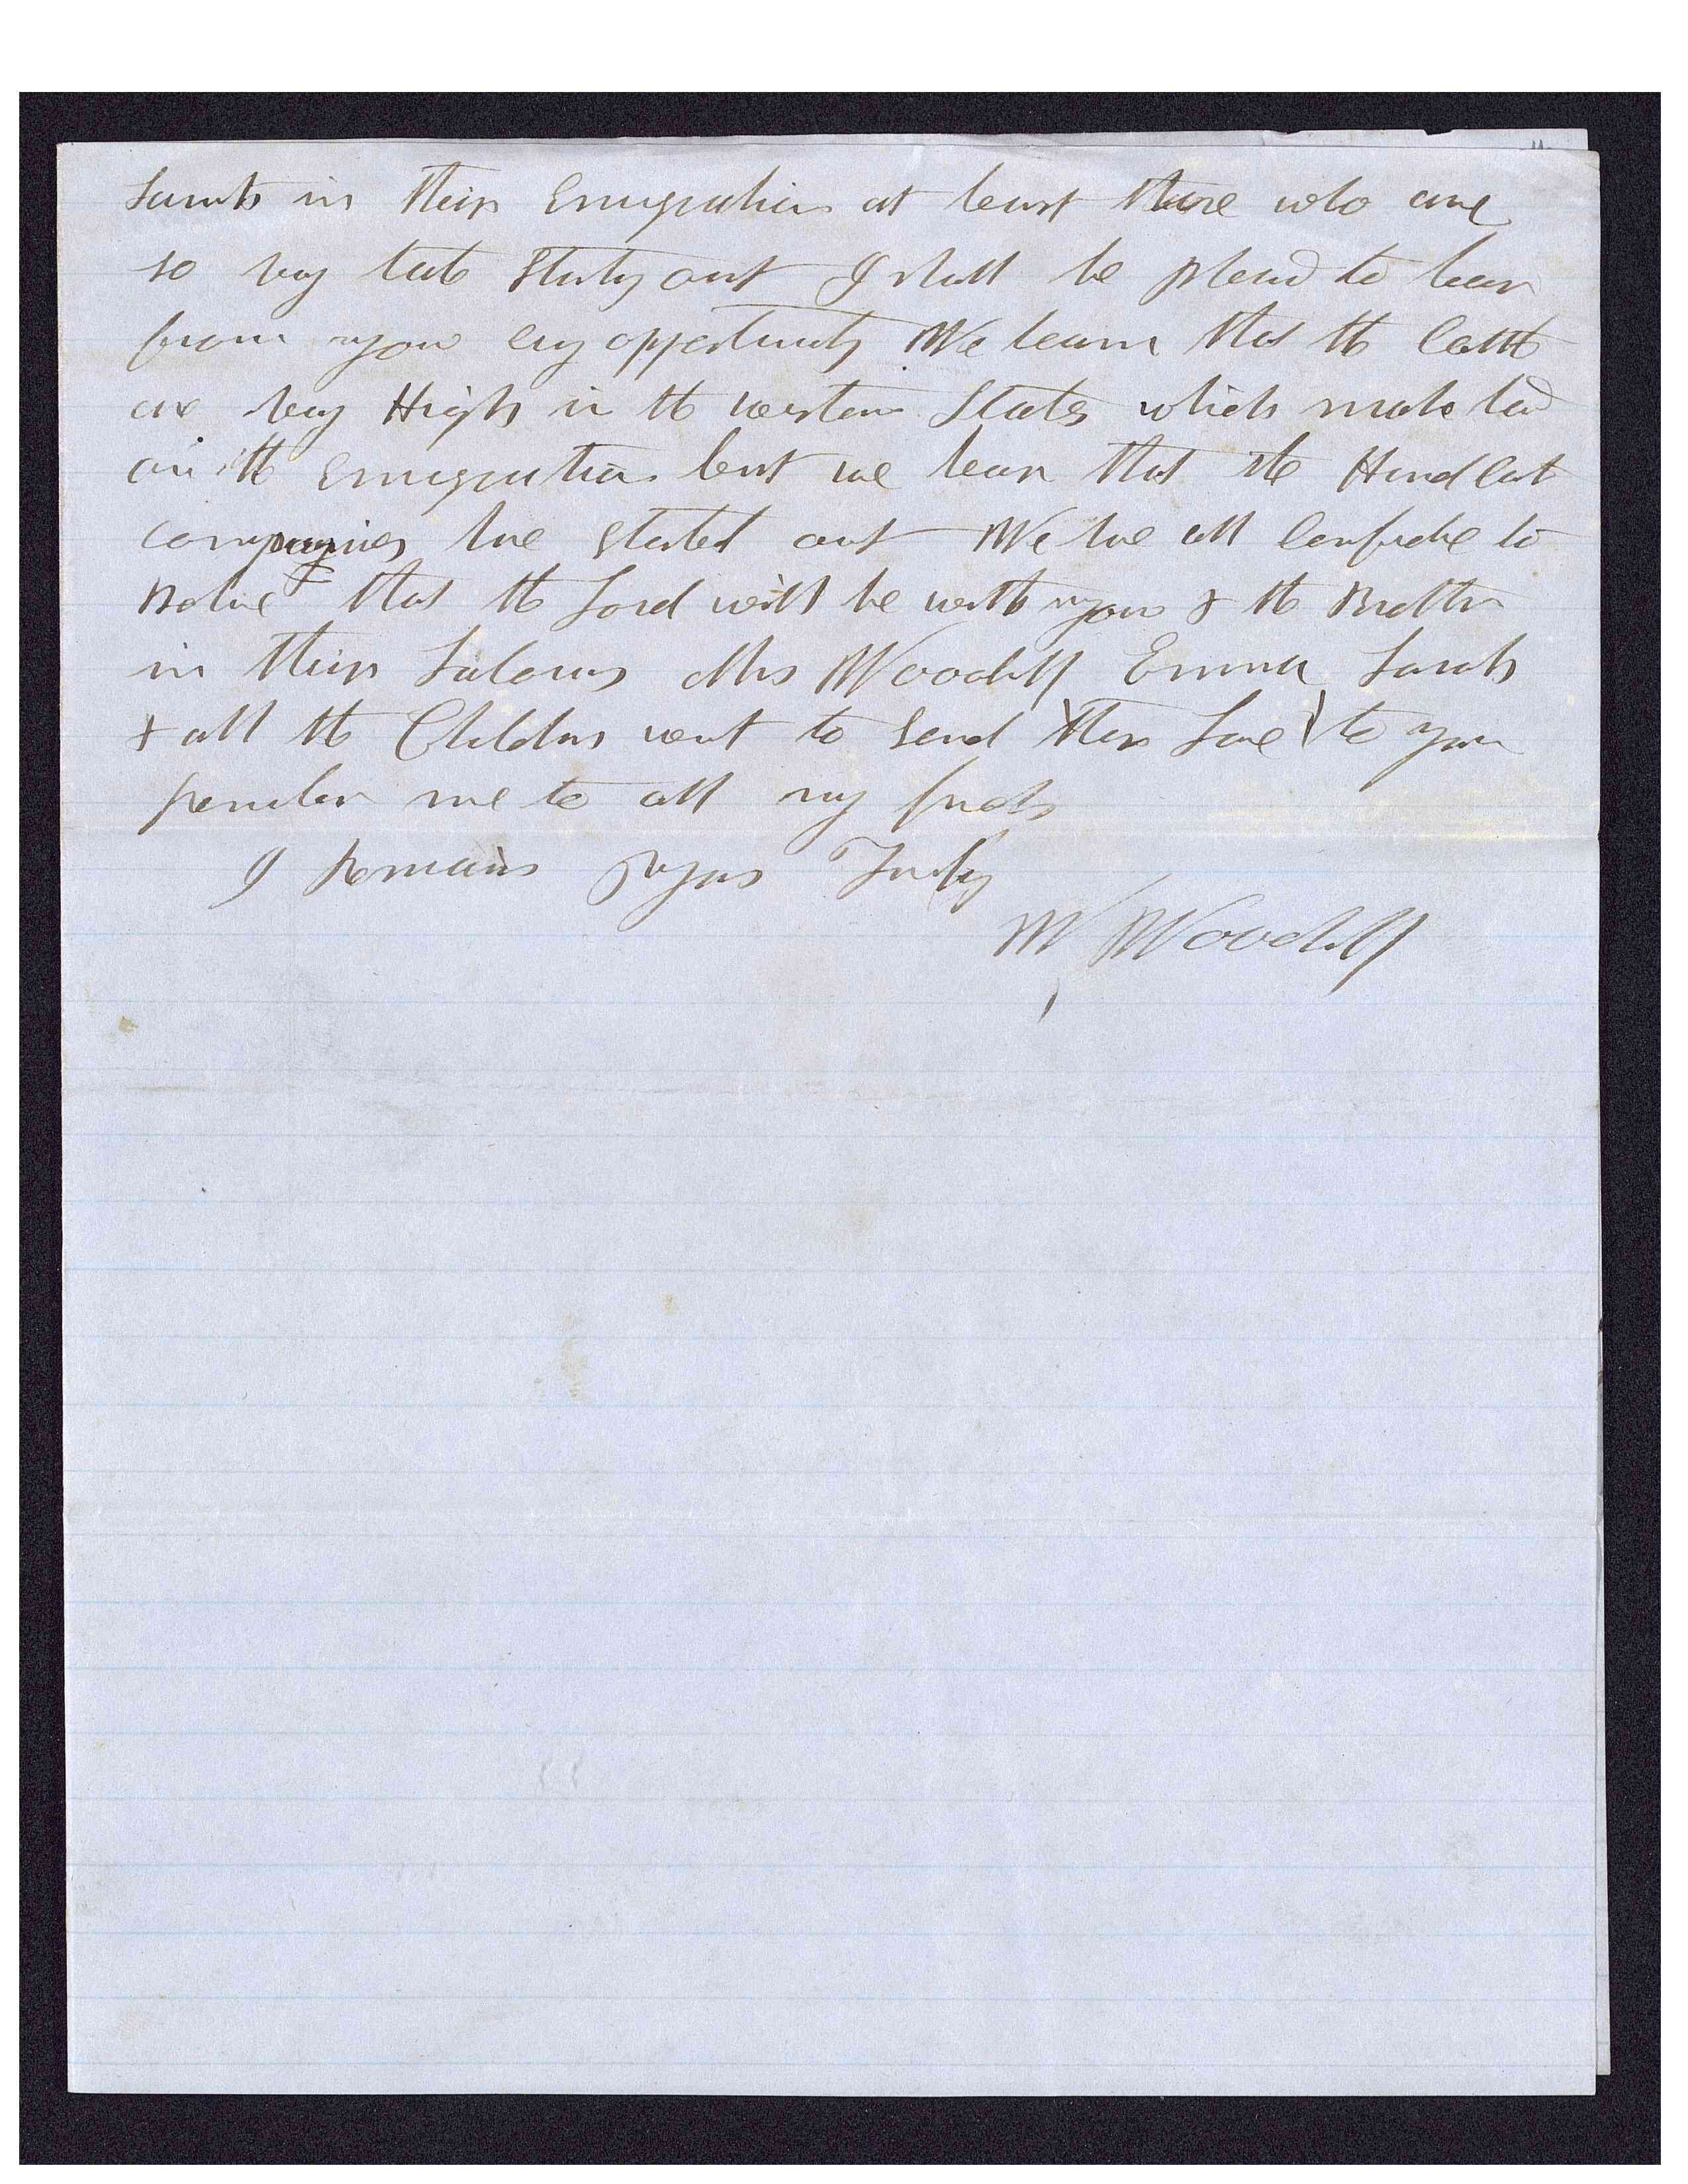 Saints in their Emigration at least those who are
so very late Starting out I shall be pleased to hear
from you evry opportunity We learn that the Cattle
are very High in the western States which make hard
on the Emigration but we learn that the Hand Cart
companies have started out We have all Confidence to
believe that the Lord will be with you & the Brethren
in their Labours Mrs Woodruff Emma Sarah
& all the Children want to Send their Love to you
remember me to all my friends
I Remain Yours Truly
W Woodruff